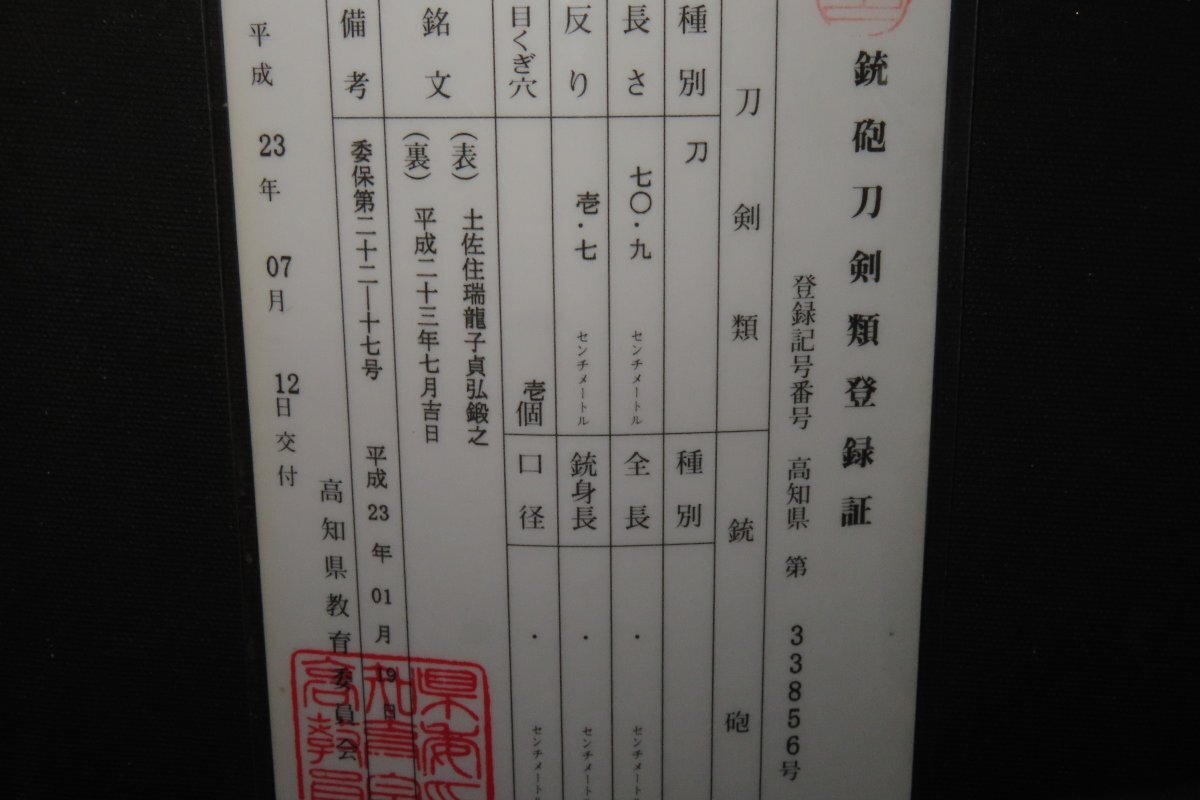 銃砲刀剣類登録証
登録記号番号 高知県 第 33856号
刀剣類
銃砲
種別 刀
種別
長さ 七〇・九 センチメートル
全長 ・ センチメートル
反り 壱・七 センチメートル
銃身長 ・ センチメートル
目くぎ穴 壱個
口径 ・ センチメートル
銘文
(表) 土佐住瑞龍子貞弘鍛之
(裏) 平成二十三年七月吉日
備考 委保第二十二―十七号 平成 23 年 01 月 19 日
高知県教育委員会
平成 23年 07月 12日交付